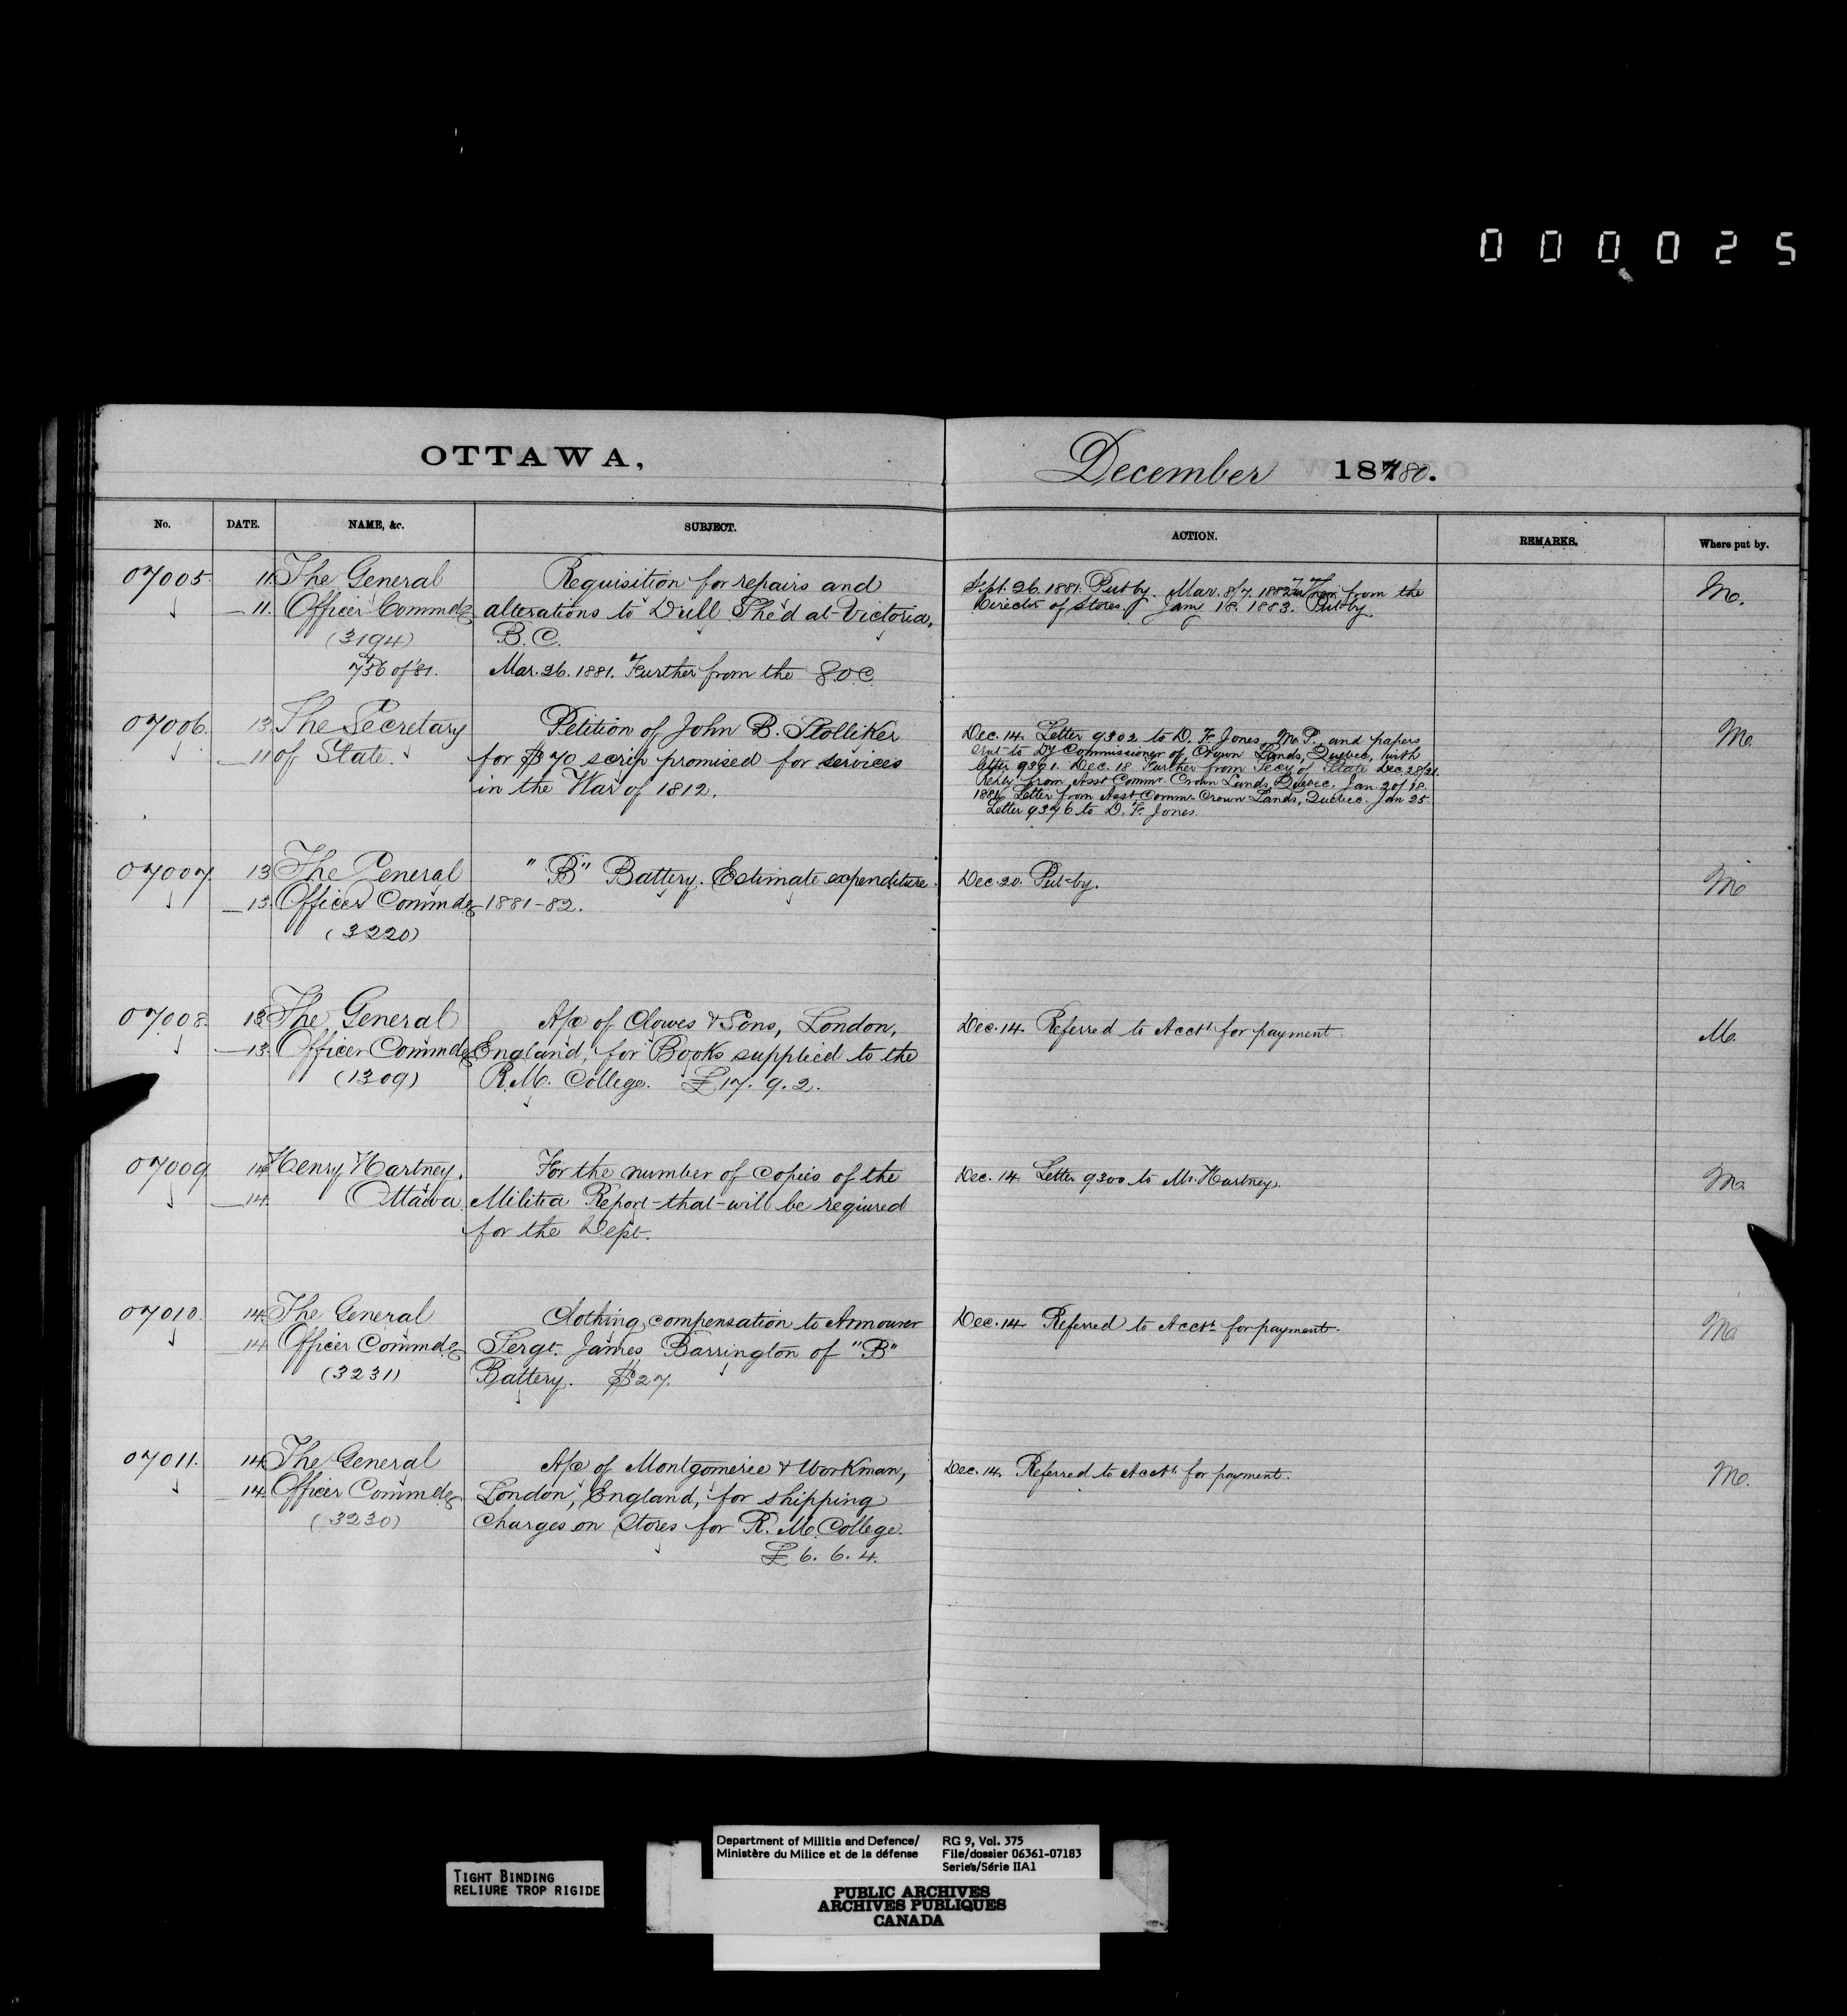 000025
OTTAWA,
December 1880.
No. DATE. NAME, &c. SUBJECT. ACTION. REMARKS. Where put by.
07005. 11. The General Requisition for repairs and
11. Officer Commdg alterations to Drill Shed at Victoria,
(3194) B.C.
756 of 81. Mar. 26. 1881. Further from the G.O.C
Sept. 26. 1881. Put by. Mar. 8/7. 1882 from the
Director of Stores. Jany 18. 1883. Put by.
M.
07006. 13. The Secretary Petition of John B. Stolliker
11 of State. for $370 scrip promised for services
in the War of 1812.
Dec. 14. Letter 9302 to D. F. Jones, M.P. and papers
sent to Dy Commissioner of Crown Lands, Quebec, with
letter 9301. Dec. 18 Further from Secy of State Dec 28/21.
Reply from Asst Commr. Crown Lands, Quebec. Jan. 20/18.
1881, Letter from Asst Commr. Crown Lands, Quebec. Jan 25.
Letter 9376 to D. F. Jones.
M.
07007. 13 The General "B" Battery. Estimate expenditure
13. Officer Commdg 1881-82.
(3220)
Dec. 20. Put by.
M
07008. 13 The General A/c of Clowes & Sons, London,
13. Officer Commdg England, for Books supplied to the
(1309) R.M. College. £17. 9. 2.
Dec. 14. Referred to Acctt. for payment.
M.
07009. 14 Henry Hartney. For the number of copies of the
14. Ottawa Militia Report that will be required
for the Dept.
Dec. 14. Letter 9300 to Mr. Hartney.
M.
07010. 14. The General Clothing compensation to Armourer
14. Officer Commdg Sergt. James Barrington of "B"
(3231) Battery. $27.
Dec. 14. Referred to Acctt. for payment.
M
07011. 14. The General A/c of Montgomerie & Workman,
14. Officer Commdg London, England, for shipping
(3230) Charges on Stores for R. M. College.
£6. 6. 4.
Dec. 14. Referred to Acctt. for payment.
M.
TIGHT BINDING
RELIURE TROP RIGIDE
Department of Militia and Defence/
Ministère du Milice et de la défense
RG 9, Vol. 375
File/dossier 06361-07183
Series/Série IIA1
PUBLIC ARCHIVES
ARCHIVES PUBLIQUES
CANADA